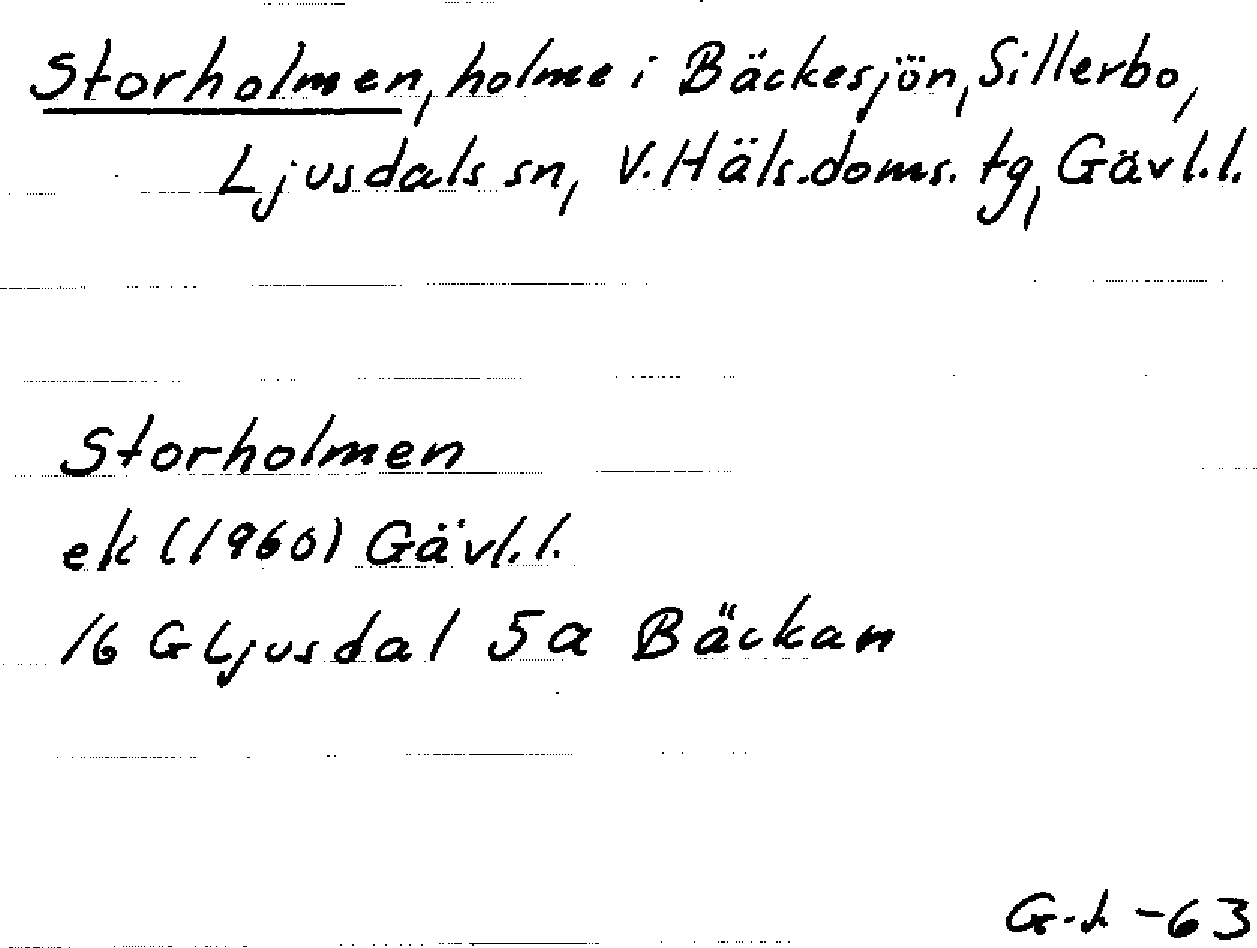 Storholmen, holme i Bäckesjön, Sillerbo,
Ljusdals sn, V. Häls. doms. tg, Gävl. l.
Storholmen
ek (1960) Gävl. l.
16 G Ljusdal 5a Bäckan
-63